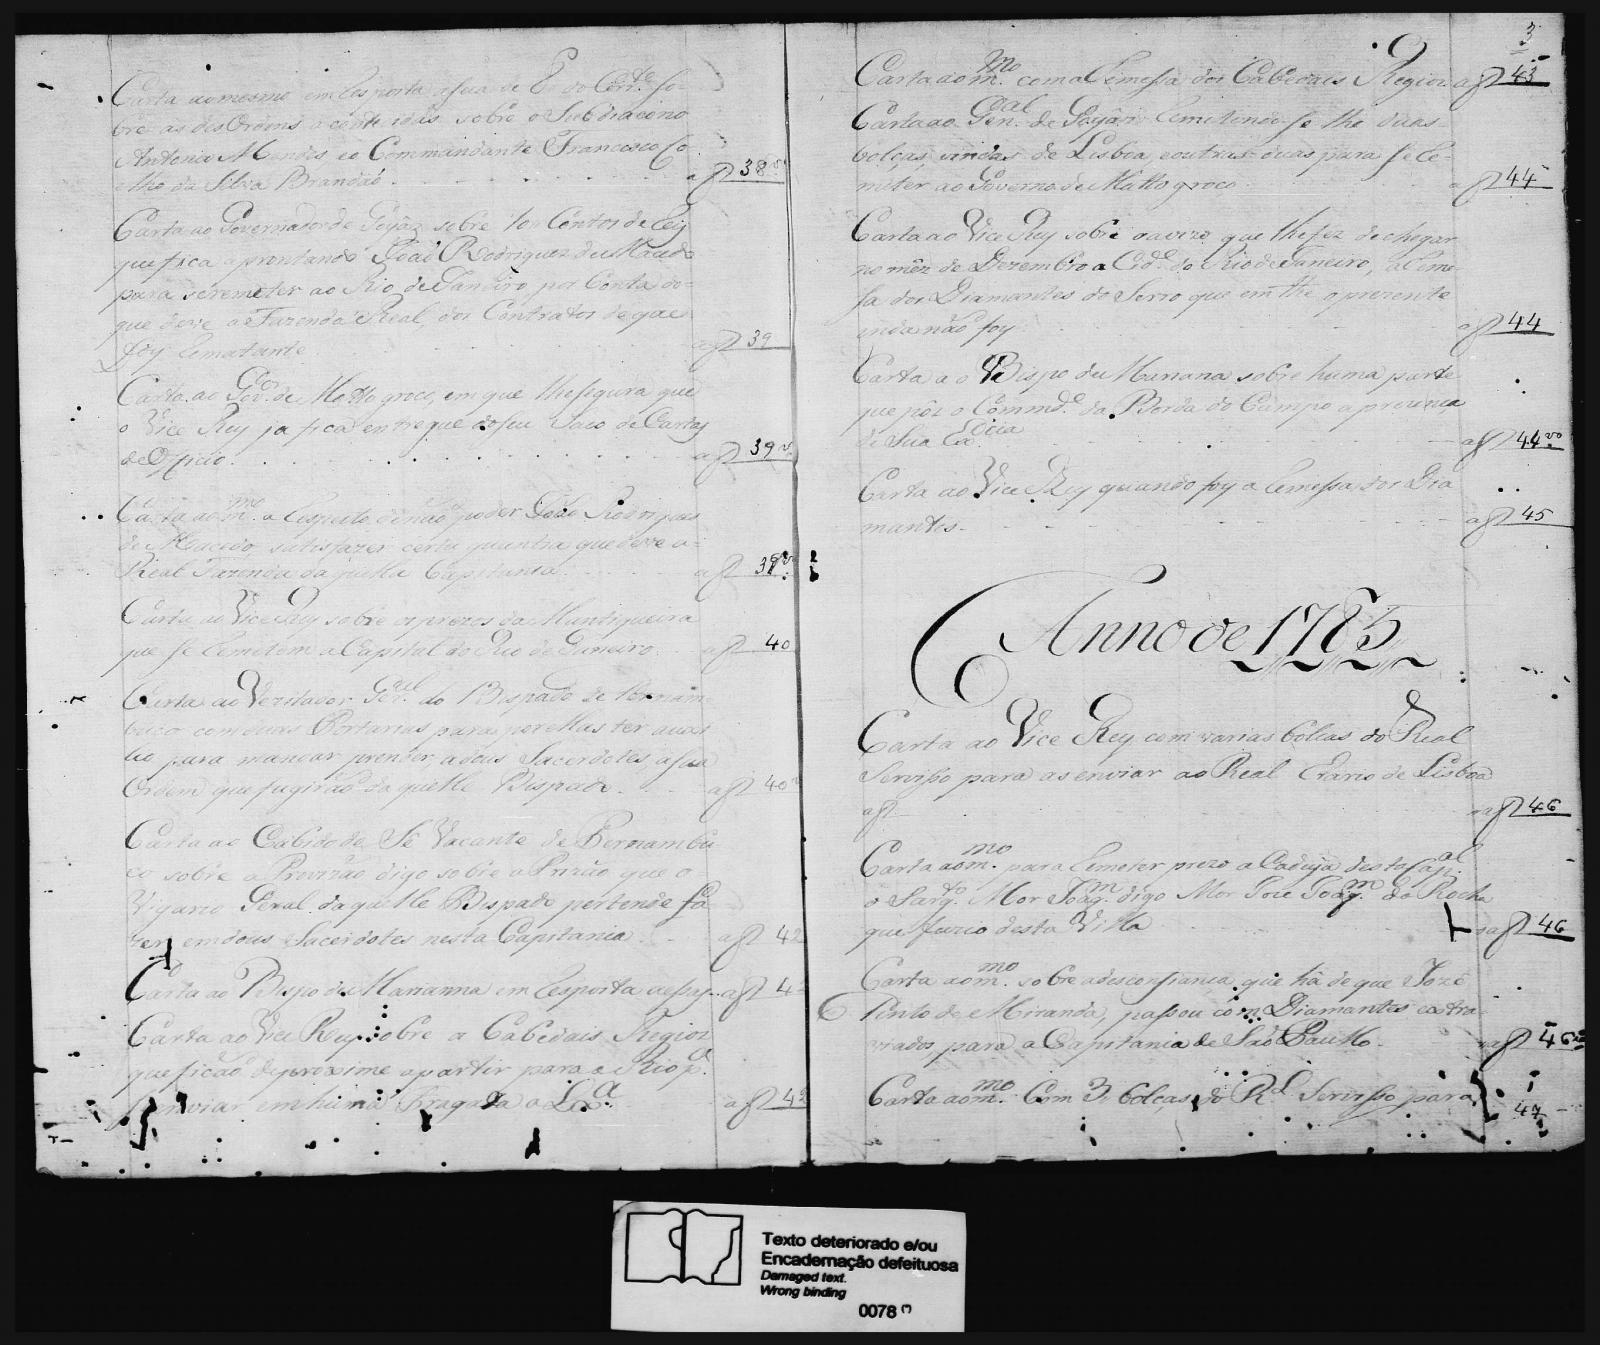 Carta ao mesmo em resposta a sua de 6 do Corr.te so-
bre as desOrdens acontecidas sobre o Subdiacono
Antonio Mendes, eo Commandante Francisco Co-
elho da Silva Brandaõ. a f 38 vo
Carta ao Governador de Goyáz sobre 100 Contos de Reis
que fica aprontando Joaõ Rodrigues de Macedo
para se remeter ao Rio de Janeiro por Conta do-
que deve a Fazenda Real, dos Contratos de que
foy Rematante a f 39
Carta ao Gov.or de Matto groco, em que lhe figura que
o Vice Rey ja fica entregue do seu Saco de Cartas
de Officio. a f 39 vo
Carta ao m.mo a respeito de naõ poder Joaõ Rodrigues
de Macedo satisfazer certa quantia que deve a-
Real Fazenda daquella Capitania a f 39 vo
Carta ao Vice Rey sobre os prezos da Mantiqueira
que se remetem a Capital do Rio de Janeiro a f 40
Carta ao Vezitador G.al do Bispado de Pernam-
buco com duas Portarias para por ellas ter auxi-
lio para mandar prender a dous Sacerdotes, a sua
Ordem que fugiraõ daquelle Bispado. a f 40 v
Carta ao Cabido de Sé Vacante de Pernambu-
co sobre a Provizaõ digo sobre a Prizaõ que o-
Vigario Geral daquelle Bispado pertende fa-
zer em dous Sacerdotes nesta Capitania a f 42
Carta ao Bispo de Marianna em resposta a f 4
Carta ao Vice Rey sobre a Cabedais Regios
que ficaõ de proximo a partir para o Rio p.a
enviar em huma Fragata a Lx.a a f 42
3
Carta ao m.mo com a Remessa dos Cabedais Regios a f 43
Carta ao Gen.al de Goyáz remetendo-se lhe duas
bolças vindas de Lisboa, e outras duas para se re-
meter ao Governo de Matto groco a f 44
Carta ao Vice Rey sobre o avizo que lhe fez de chegar
no mêz de Dezembro a Cid.e do Rio de Janeiro, a Reme-
sa dos Diamantes do Serro que em the o prezente
inda naõ foy a f 44
Carta a o Bispo de Mariana sobre huma parte
que pôz o Commd.e da Borda do Campo a prezença
de Sua Ex.cia a f 44 vo
Carta ao Vice Rey quando foy a Remessa dos Dia
mantes. a f 45
Anno de 1785
Carta ao Vice Rey com varias bolcas do Real
Servisso para as enviar ao Real Erario de Lisboa
a f a f 46
Carta ao m.mo para remeter prezo a Cadeya desta Cap.al
o Sarg.to Mor Joaq.m digo Mor Joze Joaq.m da Rocha
que fugio desta Villa a f 46
Carta ao m.mo sobre a desconfiança que há de que Jozé
Pinto de Miranda, passou com Diamantes extra-
viados para a Capitania de Saõ Paullo. a f 46 vo
Carta ao m.mo Com 3 bolças do R.l Servisso para
47
Texto deteriorado e/ou
Encadernação defeituosa
Damaged text.
Wrong binding
0078 (*)